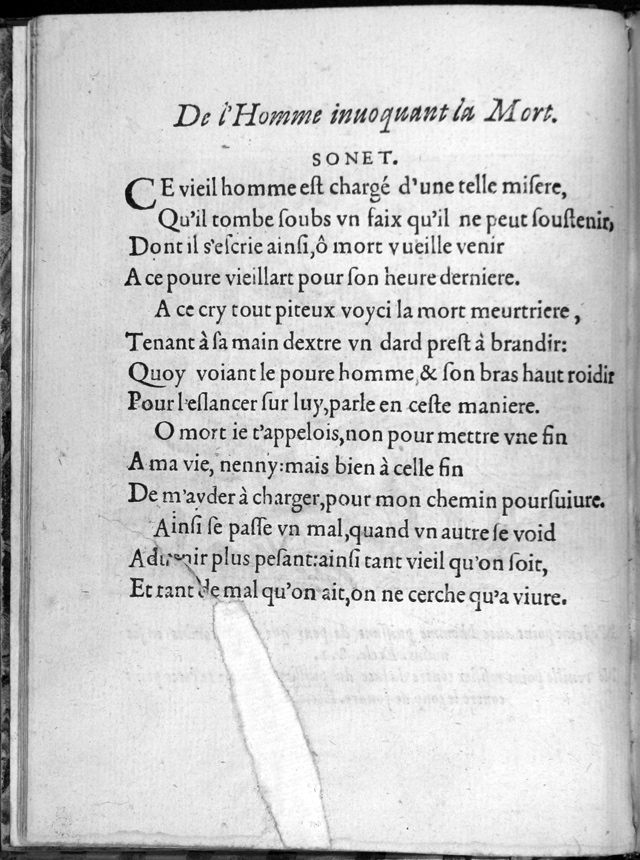 De l'Homme inuoquant la Mort.
SONET.
CE vieil homme est chargé d'vne telle misere,
Qu'il tombe soubs vn faix qu'il ne peut soustenir,
Dont il s'escrie ainsi, ô mort vueille venir
A ce poure vieillart pour son heure derniere.
A ce cry tout piteux voyci la mort meurtriere,
Tenant à sa main dextre vn dard prest à brandir:
Quoy voiant le poure homme, & son bras haut roidir
Pour l'eslancer sur luy, parle en ceste maniere.
O mort ie t'appelois, non pour mettre vne fin
A ma vie, nenny: mais bien à celle fin
De m'ayder à charger, pour mon chemin poursuiure.
Ainsi se passe vn mal, quand vn autre se void
Aduenir plus pesant: ainsi tant vieil qu'on soit,
Et tant de mal qu'on ait, on ne cerche qu'a viure.